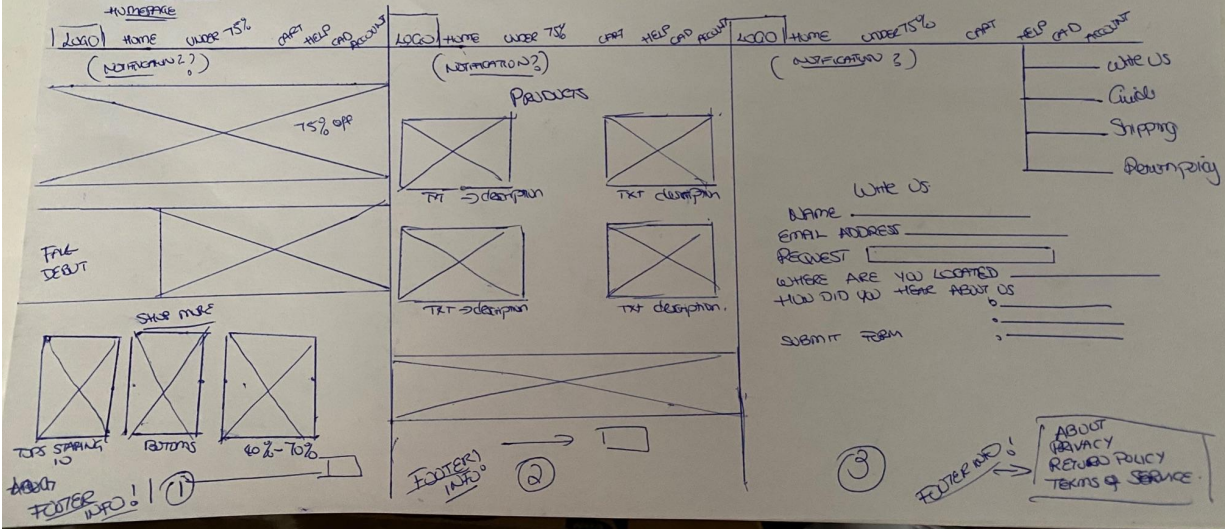 HOMEPAGE
LOGO HOME UNDER 75% CART HELP CAD ACCOUNT
(NOTIFICATION??)
75% OFF
FALL
DEBUT
SHOP MORE
TOPS STARING
10
BOTTOMS
40%-70%
ABOUT
FOOTER
INFO!
1
LOGO HOME UNDER 75% CART HELP CAD ACCOUNT
(NOTIFICATION?)
PRODUCTS
TXT → description
TXT description
TXT → description
TXT description.
FOOTER!
INFO!
2
LOGO HOME UNDER 75% CART HELP CAD ACCOUNT
(NOTIFICATION?)
Write US
Guide
Shipping
Return policy
Write US
NAME
EMAIL ADDRESS
REQUEST
WHERE ARE YOU LOCATED
HOW DID YOU HEAR ABOUT US
SUBMIT FORM
3
FOOTER INFO!
ABOUT
PRIVACY
RETURN POLICY
TERMS OF SERVICE.